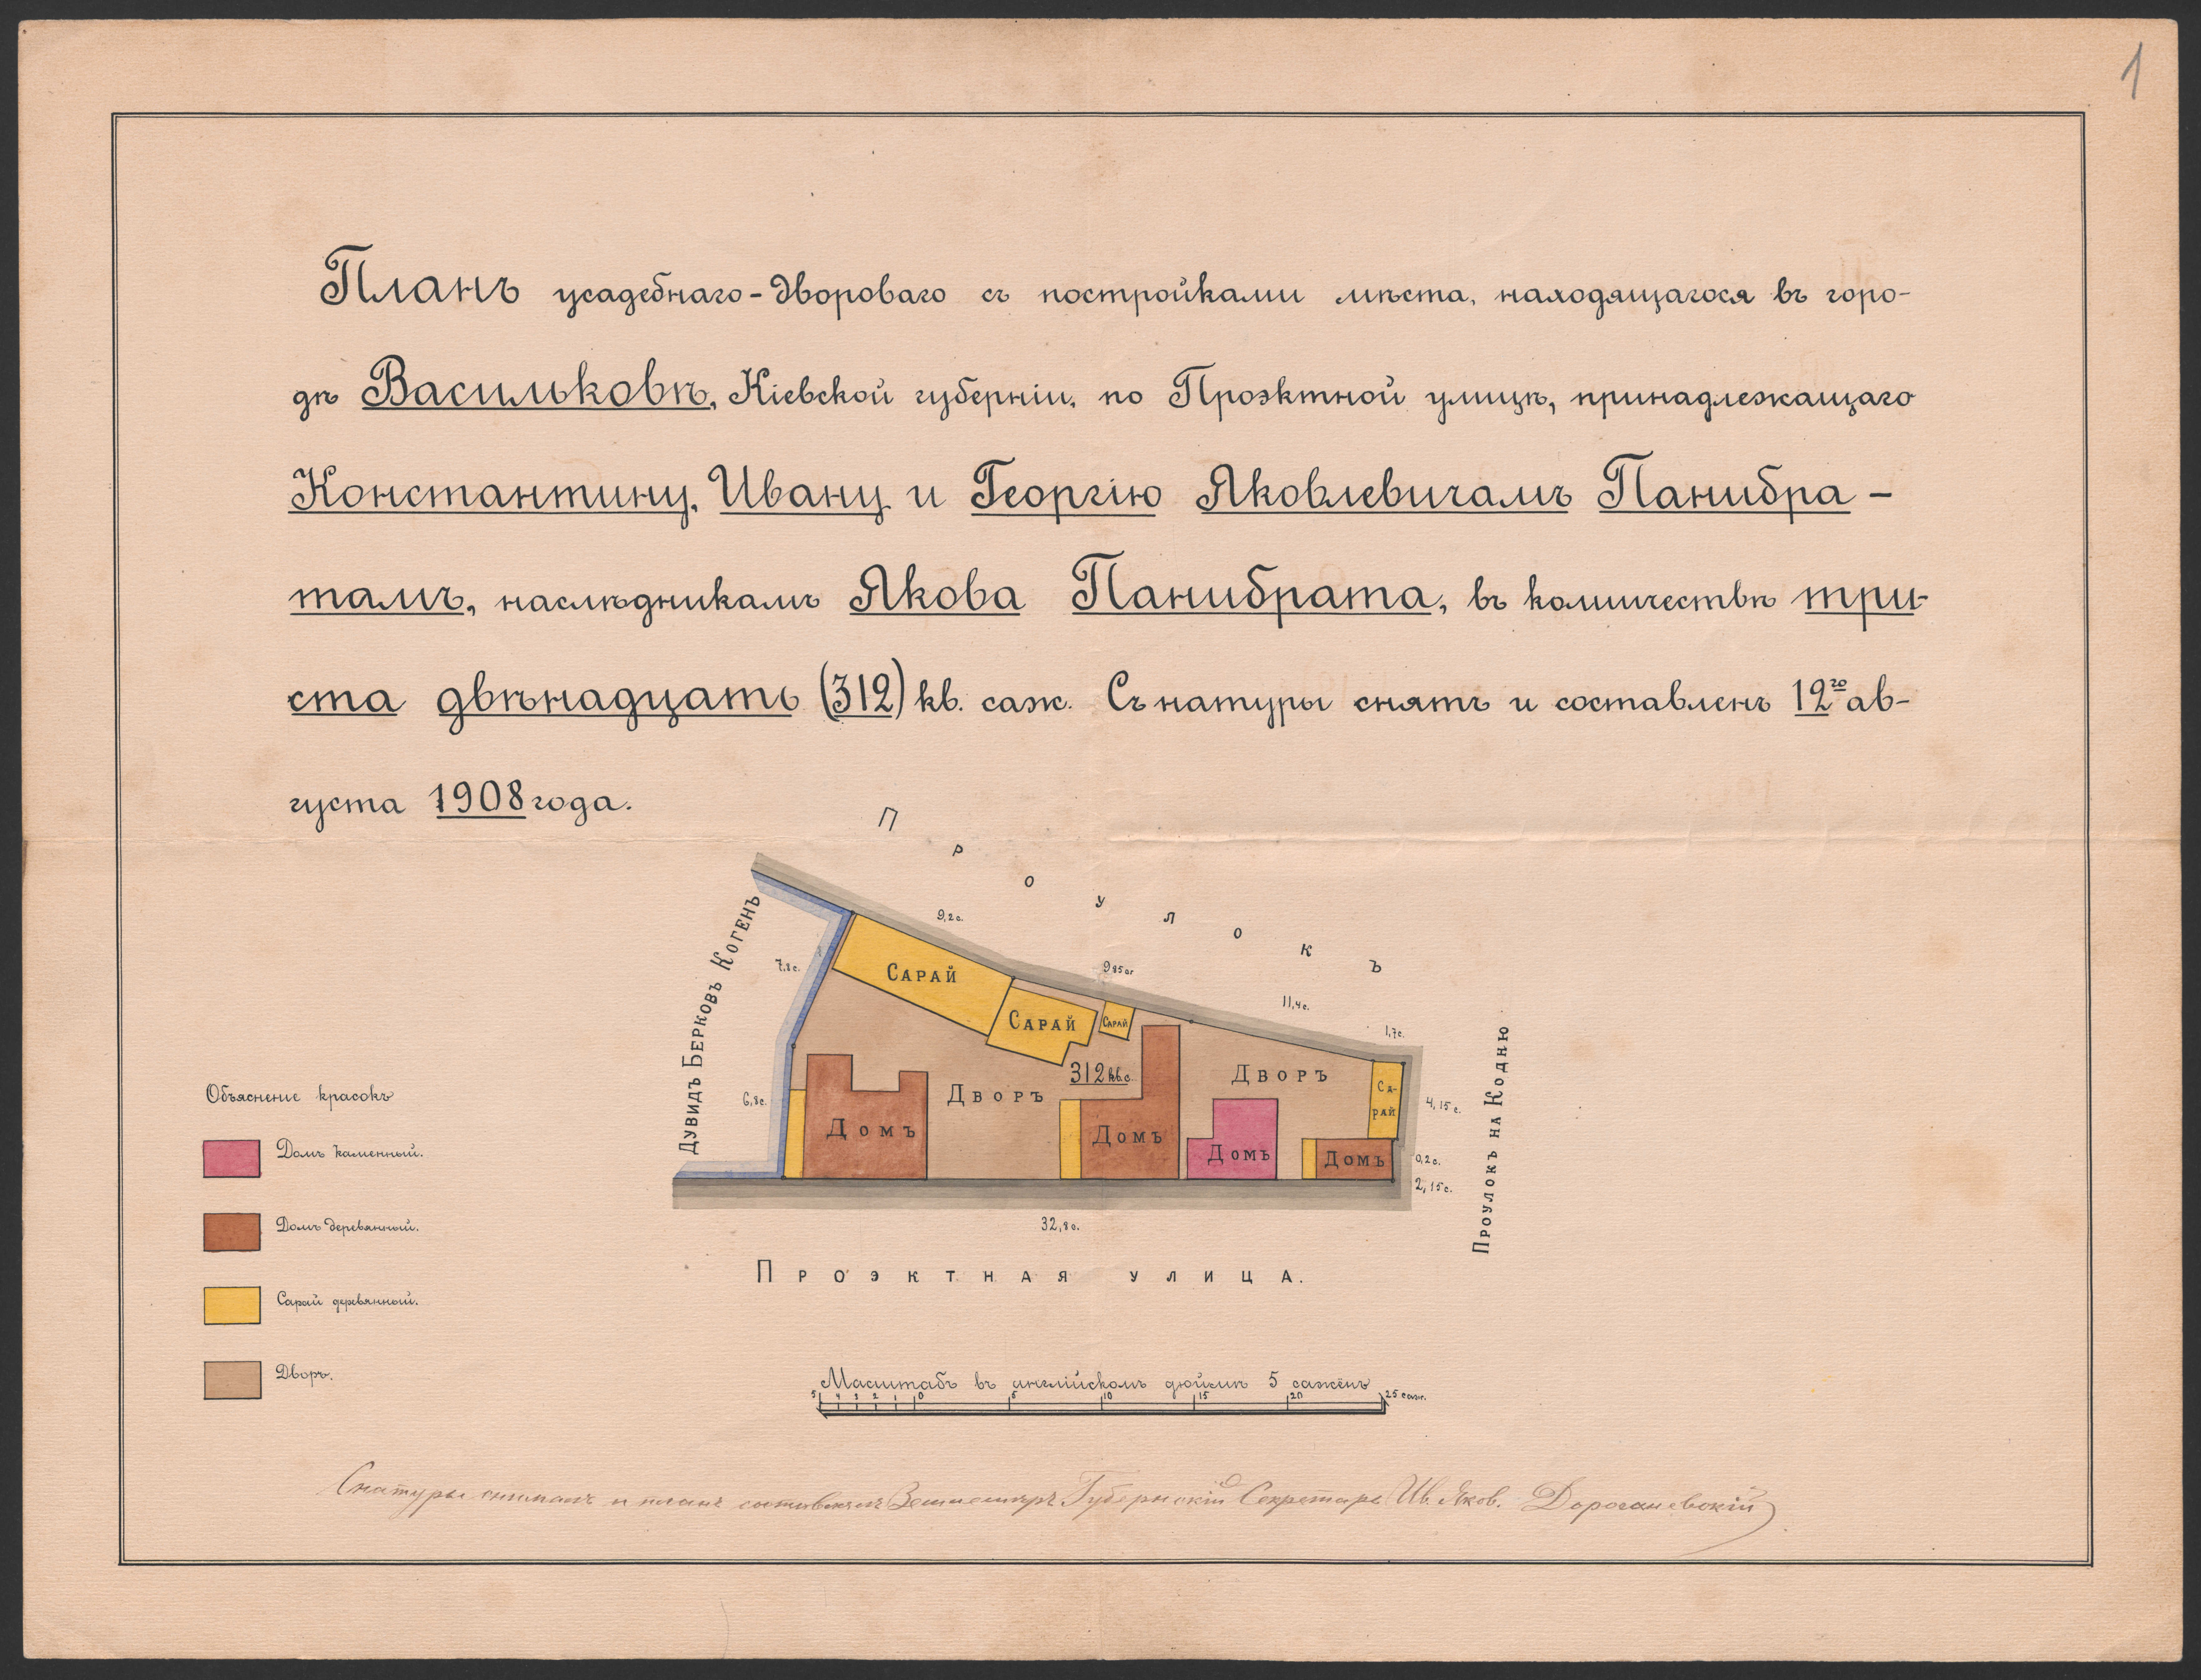 1
Планъ усадебнаго-двороваго съ постройками мѣста, находящагося въ горо-
дѣ Васильковѣ, Кіевской губерніи, по Проэктной улицѣ, принадлежащаго
Константину, Ивану и Георгію Яковлевичамъ Панибра-
тамъ, наслѣдникамъ Якова Панибрата, въ количествѣ три-
ста двѣнадцать (312) кв. саж. Съ натуры снятъ и составленъ 12го ав-
густа 1908 года.
Проулокъ
9,2 с.
9,85 с.
11,4 с.
1,7 с.
Дувидъ Берковъ Когенъ
7,2 с.
6,8 с.
Сарай
Сарай
Сарай
312 кв.с.
Дворъ
Дворъ
Са-
рай
Домъ
Домъ
Домъ
Домъ
4,15 с.
0,2 с.
2,15 с.
Проулокъ на Кодню
32,8 с.
Проэктная улица.
Объяснение красокъ
Домъ каменный.
Домъ деревянный.
Сарай деревянный.
Дворъ.
Масштабъ въ англійскомъ дюймѣ 5 сажень
5 4 3 2 1 0 5 10 15 20 25 саж.
Снатуры снималъ и планъ составлялъ Землемѣръ Губернскій Секретарь Ив. Яков. Дорогановскій